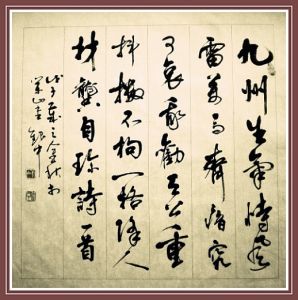 九州生氣恃風
雷萬馬齊喑究
可哀我勸天公重
抖擻不拘一格降人
材龔自珍詩一首
戊子歲之金秋於